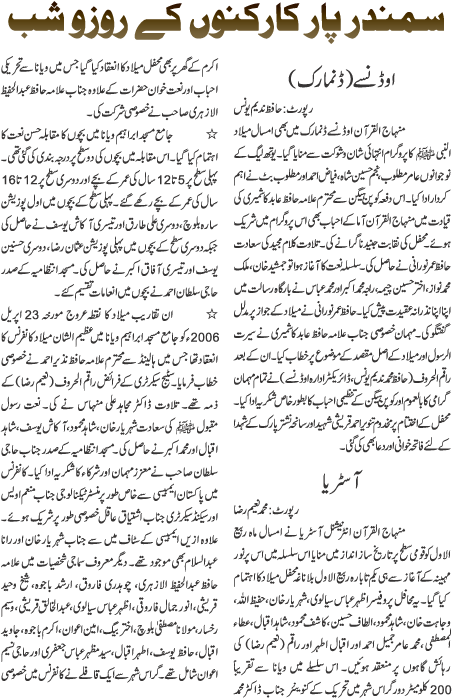 سمندر پار کارکنوں کے روز و شب
اوڈنسے (ڈنمارک)
رپورٹ: حافظ ندیم یونس
منہاج القرآن اوڈنسے ڈنمارک میں بھی امسال میلاد
النبی ﷺ کا پروگرام انتہائی شان و شوکت سے منایا گیا۔ یوتھ لیگ کے
نوجوانوں عامر مطلوب، نجم حسین شاہ، فیاض احمد اور مطلوب بٹ نے اہم
کردار ادا کیا۔ اس دفعہ کوپن ہیگن سے محترم علامہ حافظ عابد کاشمیری کی
قیادت میں منہاج القرآن آما کے احباب بھی اس پروگرام میں شریک
ہوئے۔ محفل کی نقابت جنید زگر نے کی۔ تلاوت کلام مجید کی سعادت
حافظ عمر نورانی نے حاصل کی۔ سلسلہ نعت کا آغاز ہوا تو جمشید خان، ملک
محمد نواز، اختر حسین چیمہ، راجہ محمد اکبر اور محمد عباس نے بارگاہ رسالت میں
اپنا اپنا نذرانہ عقیدت پیش کیا۔ حافظ عمر نورانی نے میلاد کے جواز پر مدلل
گفتگو کی۔ مہمان خصوصی جناب علامہ حافظ عابد کاشمیری نے سیرت
الرسول اور میلاد کے اصل مقصد کے موضوع پر خطاب کیا۔ ان کے بعد
راقم الحروف (حافظ محمد ندیم یونس، ڈائریکٹر ادارہ اوڈنسے) نے تمام مہمان
گرامی کا بالعموم اور کوپن ہیگن کے تنظیمی احباب کا بطور خاص شکریہ ادا کیا۔
محفل کے اختتام پر مخدوم تنویر احمد قریشی شہید اور سانحہ نشتر پارک کے شہدا
کے لئے فاتحہ خوانی اور دعا بھی کی گئی۔
آسٹریا
رپورٹ: محمد نعیم رضا
منہاج القرآن انٹرنیشنل آسٹریا نے امسال ماہ ربیع
الاول کو قومی سطح پر تاریخ ساز انداز میں منایا اس سلسلے میں اس پر نور
مہینہ کے آغاز سے ہی یکم تا بارہ ربیع الاول بلا ناغہ محفل میلاد کا اہتمام
کیا گیا۔ یہ محافل پروفیسر اظہر عباس سیالوی، شہریار خان، حفیظ اللہ،
وجاہت خان، شاہد محمود، الطاف حسین، کاشف محمود، شاہد اقبال، عطاء
المصطفی، محمد عامر جمیل احمد اور اقبال اظہر اور راقم (نعیم رضا) کی
رہائش گاہوں پر منعقد ہوئیں۔ اس سلسلے میں ویانا سے تقریباً
200 کلومیٹر دور گراس شہر میں تحریک کے کنوینئر جناب ڈاکٹر محمد
اکرم کے گھر پر بھی محفل میلاد کا انعقاد کیا گیا جس میں ویانا سے تحریکی
احباب اور نعت خوان حضرات کے علاوہ جناب علامہ حافظ عبدالحفیظ
الازہری صاحب نے خصوصی شرکت کی۔
☆ جامع مسجد ابراہیم ویانا میں بچوں کا مقابلہ حسن نعت کا
اہتمام کیا گیا۔ اس مقابلہ میں بچوں کی دو سطح پر درجہ بندی کی گئی تھی۔
پہلی سطح پر 5 تا 12 سال کی عمر کے بچے اور دوسری سطح پر 12 تا 16
سال کی عمر کے بچے رکھے گئے۔ پہلی سطح کے بچوں میں اول پوزیشن
سارہ بلوچ، دوسری علی طارق اور تیسری آکاش یوسف نے حاصل کی
جبکہ دوسری سطح کے بچوں میں پہلی پوزیشن عثمان رضا، دوسری حسنین
یوسف اور تیسری آفاق اکبر نے حاصل کی۔ مسجد انتظامیہ کے صدر
حاجی سلطان احمد نے بچوں میں انعامات تقسیم کئے۔
☆ ان تقاریب میلاد کا نقطہ عروج مورخہ 23 اپریل
2006 کو جامع مسجد ابراہیم ویانا میں عظیم الشان میلاد کانفرنس کا
انعقاد تھا جس میں ہالینڈ سے محترم علامہ حافظ نذیر احمد نے خصوصی
خطاب فرمایا۔ سٹیج سیکرٹری کے فرائض راقم الحروف (نعیم رضا) کے
ذمہ تھے۔ تلاوت ڈاکٹر مجاہد علی منہاس نے کی۔ نعت رسول
مقبول ﷺ کی سعادت شہریار خان، شاہد محمود، آکاش یوسف، شاہد
اقبال اور محمد اکرم نے حاصل کی۔ مسجد انتظامیہ کے صدر جناب حاجی
سلطان صاحب نے معزز مہمان اور شرکاء کا شکریہ ادا کیا۔ کانفرنس
میں پاکستان ایمبیسی سے خاص طور پر منسٹر ٹیکنالوجی جناب منعم اویس
اور سیکنڈ سیکرٹری جناب اشتیاق عاقل خصوصی طور پر شریک ہوئے۔
علاوہ ازیں ایمبیسی کے عملہ میں سے جناب شہریار خان اور رانا
عبدالسلام بھی موجود تھے۔ دیگر معروف سماجی شخصیات میں علامہ
حافظ عبدالحفیظ الازہری، چوہدری فاروق، ارشد باجوہ، شیخ وحید
قریشی، انور جمال فاروقی، اظہر عباس سیالوی، عبدالخالق قریشی،
رخسار، مولانا مصطفی بلوچ، اختر بیگ، امین اعوان، اکرم باجوہ، جاوید
اقبال، حافظ یوسف، اظہر اقبال، سید جعفر حسین جعفری اور حاجی نسیم
اعوان شامل تھے۔ گراس شہر سے ایک قافلے نے کانفرنس میں خصوصی